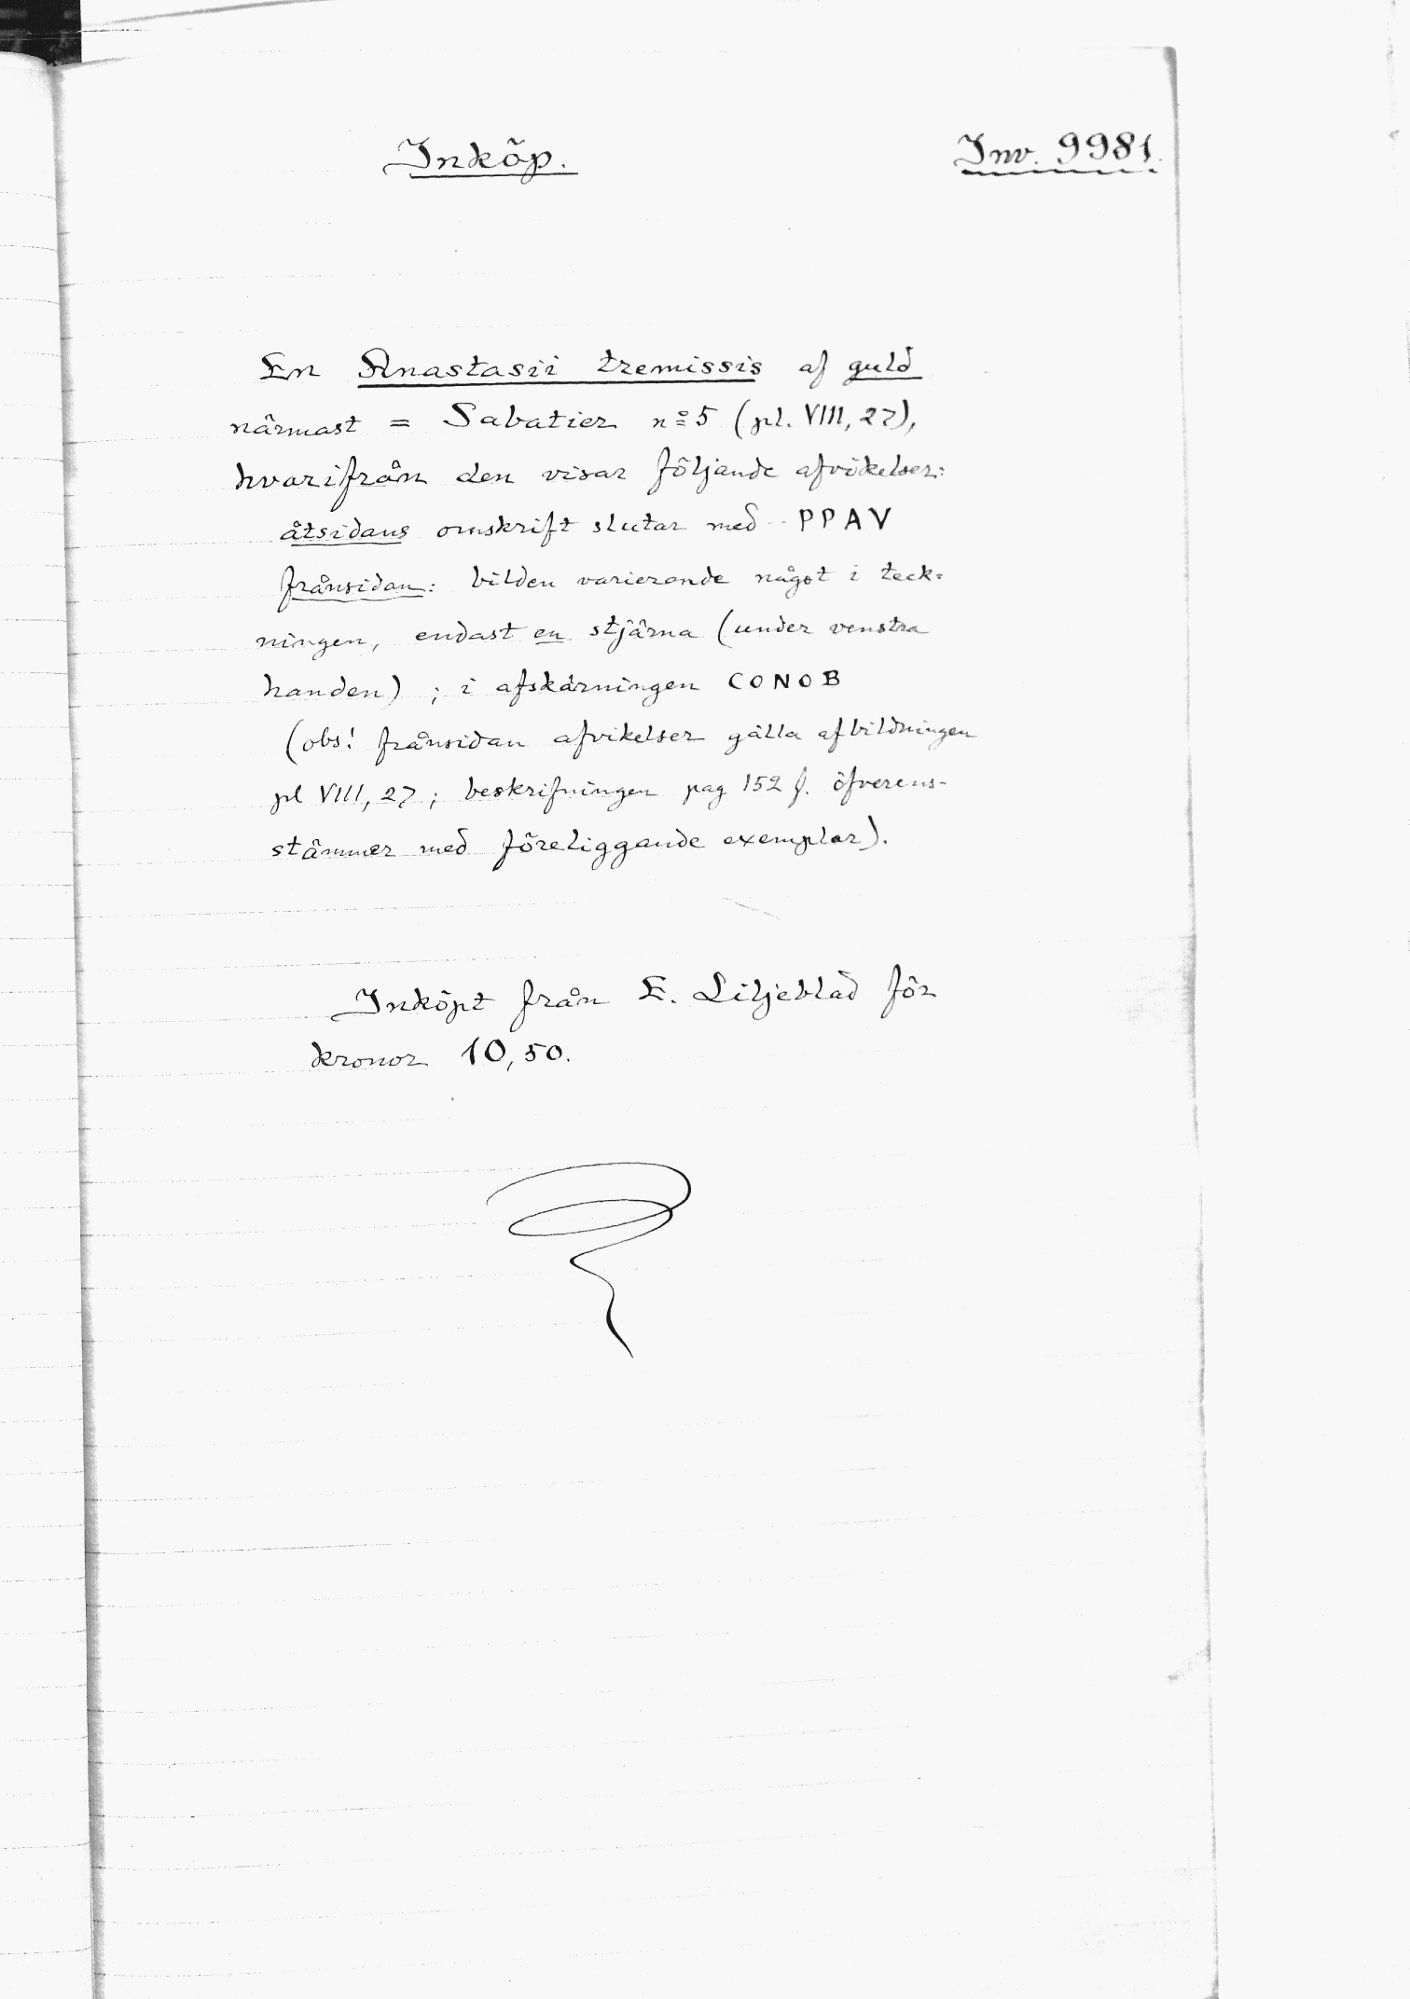 Inköp.
Inv. 9981.
En Anastasii tremissis af guld
närmast = Sabatier nº 5 (pl. VIII, 27),
hvarifrån den visar följande afvikelser:
åtsidans omskrift slutar med PPAV
frånsidan: bilden varierande något i teck-
ningen, endast en stjärna (under venstra
handen) ; i afskärningen CONOB
(obs! frånsidan afvikelser gälla afbildningen
pl VIII, 27 ; beskrifningen pag 152 f. öfverens-
stämmer med föreliggande exemplar).
Inköpt från E. Liljeblad för
kronor 10,50.